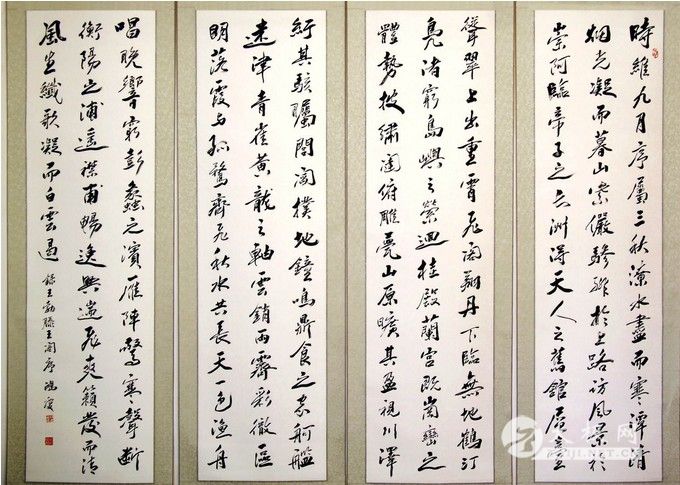 時維九月序屬三秋潦水盡而寒潭清
烟光凝而暮山紫儼驂騑於上路訪風景於
崇阿臨帝子之長洲得天人之舊館層臺
聳翠上出重霄飛閣翔丹下臨無地鶴汀
鳧渚窮島嶼之縈迴桂殿蘭宮既崗巒之
體勢披繡闥俯雕甍山原曠其盈視川澤
紆其駭矚閭閻撲地鐘鳴鼎食之家舸艦
迷津青雀黃龍之軸雲銷雨霽彩徹區
明落霞与孤鶩齊飛秋水共長天一色漁舟
唱晚響窮彭蠡之濱雁陣驚寒聲斷
衡陽之浦遙襟甫暢逸興遄飛爽籟發而清
風生纖歌凝而白雲遏
錄王勃滕王閣序